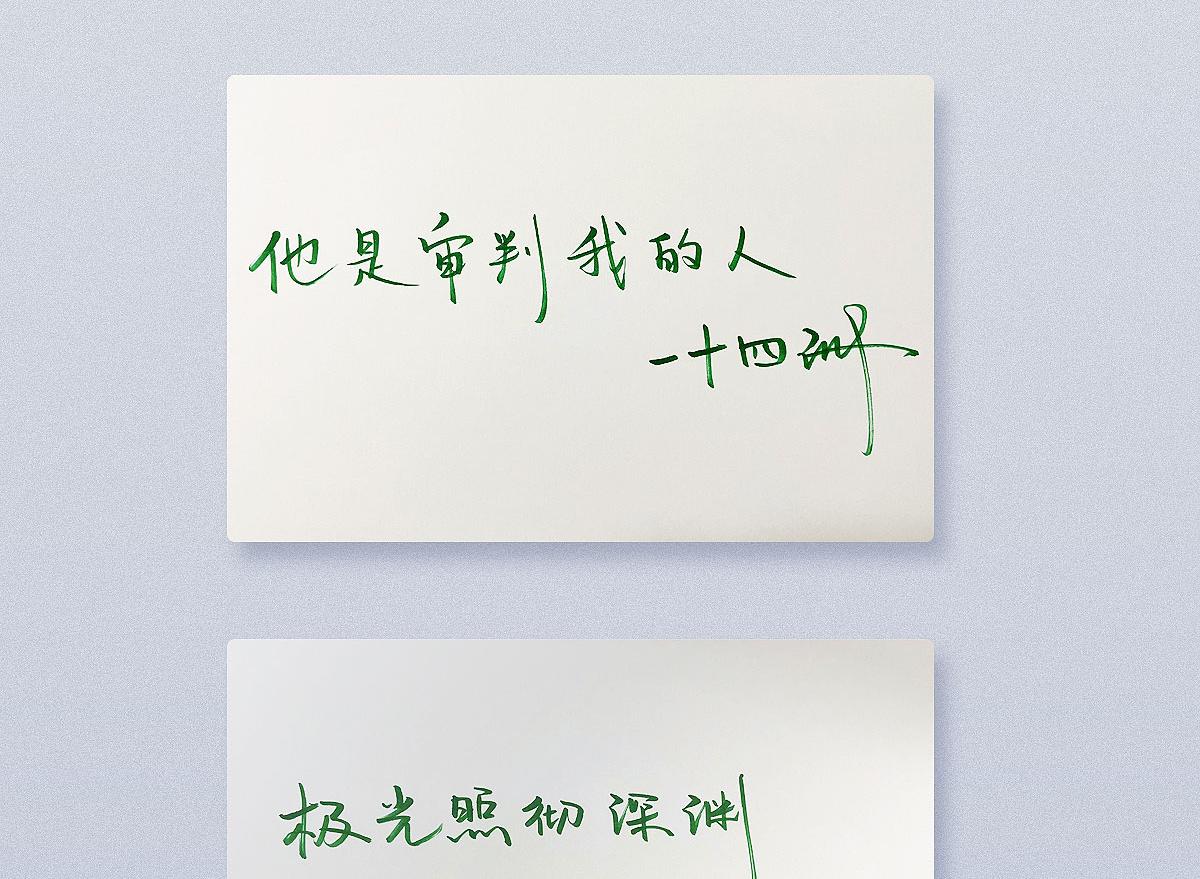 他是审判我的人
一十四洲
极光照彻深渊